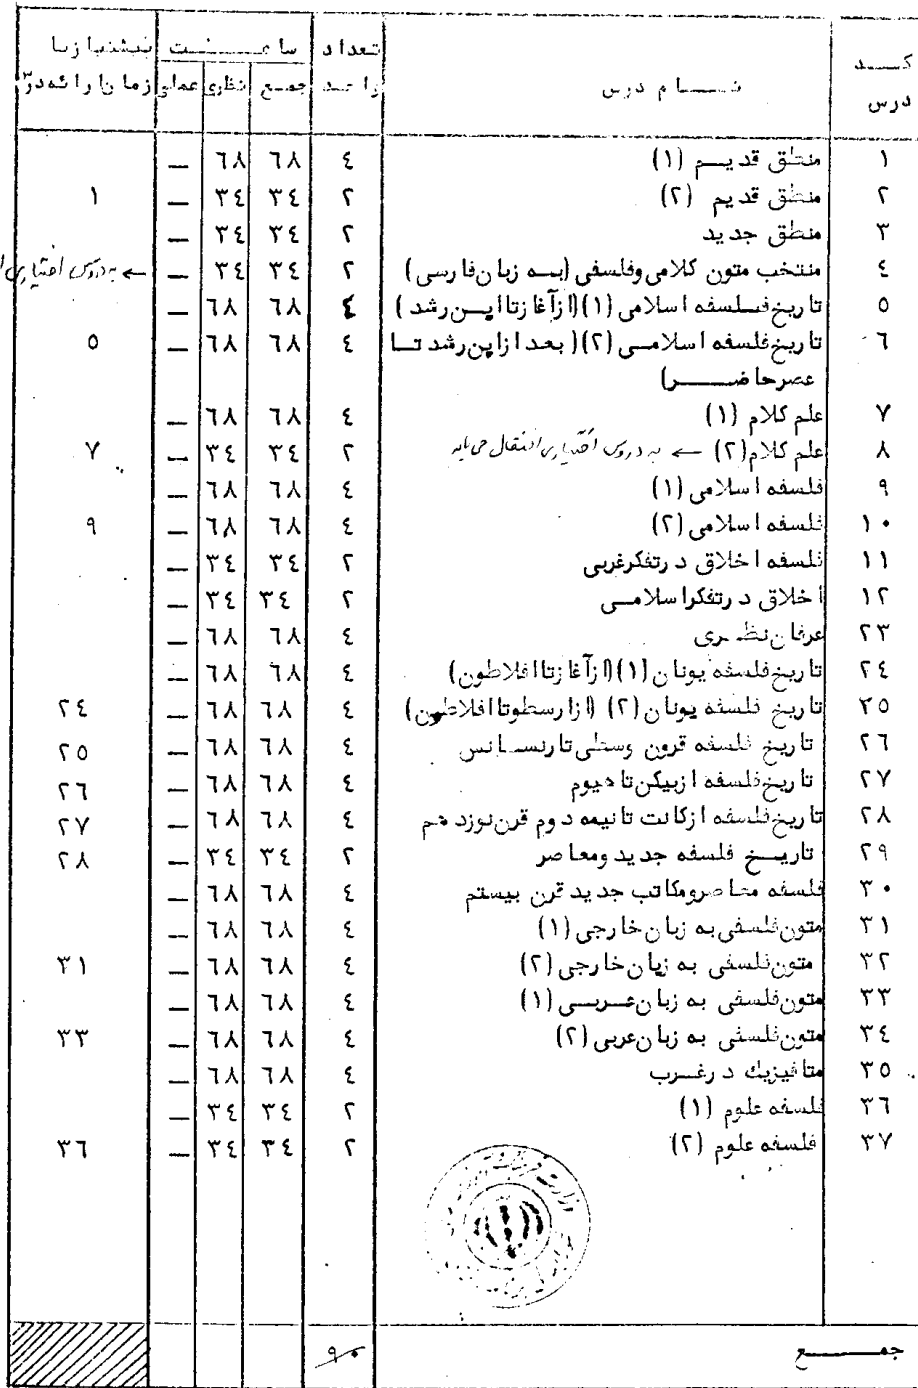 کـــد درس نـــام درس تعداد واحد ساعـــت جمع نظری عملی پیشنیاز یا زمان ارائه درس
۱ منطق قدیم (۱) ٤ ٦٨ ٦٨ —
۲ منطق قدیم (۲) ۲ ۳٤ ۳٤ — ۱
۳ منطق جدید ۲ ۳٤ ۳٤ —
٤ منتخب متون کلامی وفلسفی (به زبان فارسی) ۲ ۳٤ ۳٤ — ← به دروس اختیاری
٥ تاریخ فلسفه اسلامی (۱) (از آغاز تا ابن رشد) ٤ ٦٨ ٦٨ —
٦ تاریخ فلسفه اسلامی (۲) (بعد از ابن رشد تا ٤ ٦٨ ٦٨ — ٥
عصر حاضر)
۷ علم کلام (۱) ٤ ٦٨ ٦٨ —
۸ علم کلام (۲) ← به دروس اختیاری انتقال می یابد ۲ ۳٤ ۳٤ — ۷
۹ فلسفه اسلامی (۱) ٤ ٦٨ ٦٨ —
۱۰ فلسفه اسلامی (۲) ٤ ٦٨ ٦٨ — ۹
۱۱ فلسفه اخلاق در تفکر غربی ۲ ۳٤ ۳٤ —
۱۲ اخلاق در تفکر اسلامی ۲ ۳٤ ۳٤ —
۲۳ عرفان نظری ٤ ٦٨ ٦٨ —
۲٤ تاریخ فلسفه یونان (۱) (از آغاز تا افلاطون) ٤ ٦٨ ٦٨ —
۲٥ تاریخ فلسفه یونان (۲) (از ارسطو تا افلاطین) ٤ ٦٨ ٦٨ — ۲٤
۲٦ تاریخ فلسفه قرون وسطی تا رنسانس ٤ ٦٨ ٦٨ — ۲٥
۲۷ تاریخ فلسفه از بیکن تا هیوم ٤ ٦٨ ٦٨ — ۲٦
۲۸ تاریخ فلسفه از کانت تا نیمه دوم قرن نوزدهم ٤ ٦٨ ٦٨ — ۲۷
۲۹ تاریخ فلسفه جدید ومعاصر ۲ ۳٤ ۳٤ — ۲۸
۳۰ فلسفه معاصر ومکاتب جدید قرن بیستم ٤ ٦٨ ٦٨ —
۳۱ متون فلسفی به زبان خارجی (۱) ٤ ٦٨ ٦٨ —
۳۲ متون فلسفی به زبان خارجی (۲) ٤ ٦٨ ٦٨ — ۳۱
۳۳ متون فلسفی به زبان عربی (۱) ٤ ٦٨ ٦٨ —
۳٤ متون فلسفی به زبان عربی (۲) ٤ ٦٨ ٦٨ — ۳۳
۳٥ متافیزیك در غرب ٤ ٦٨ ٦٨ —
۳٦ فلسفه علوم (۱) ۲ ۳٤ ۳٤ —
۳۷ فلسفه علوم (۲) ۲ ۳٤ ۳٤ — ۳٦
جمـــع ۹۰